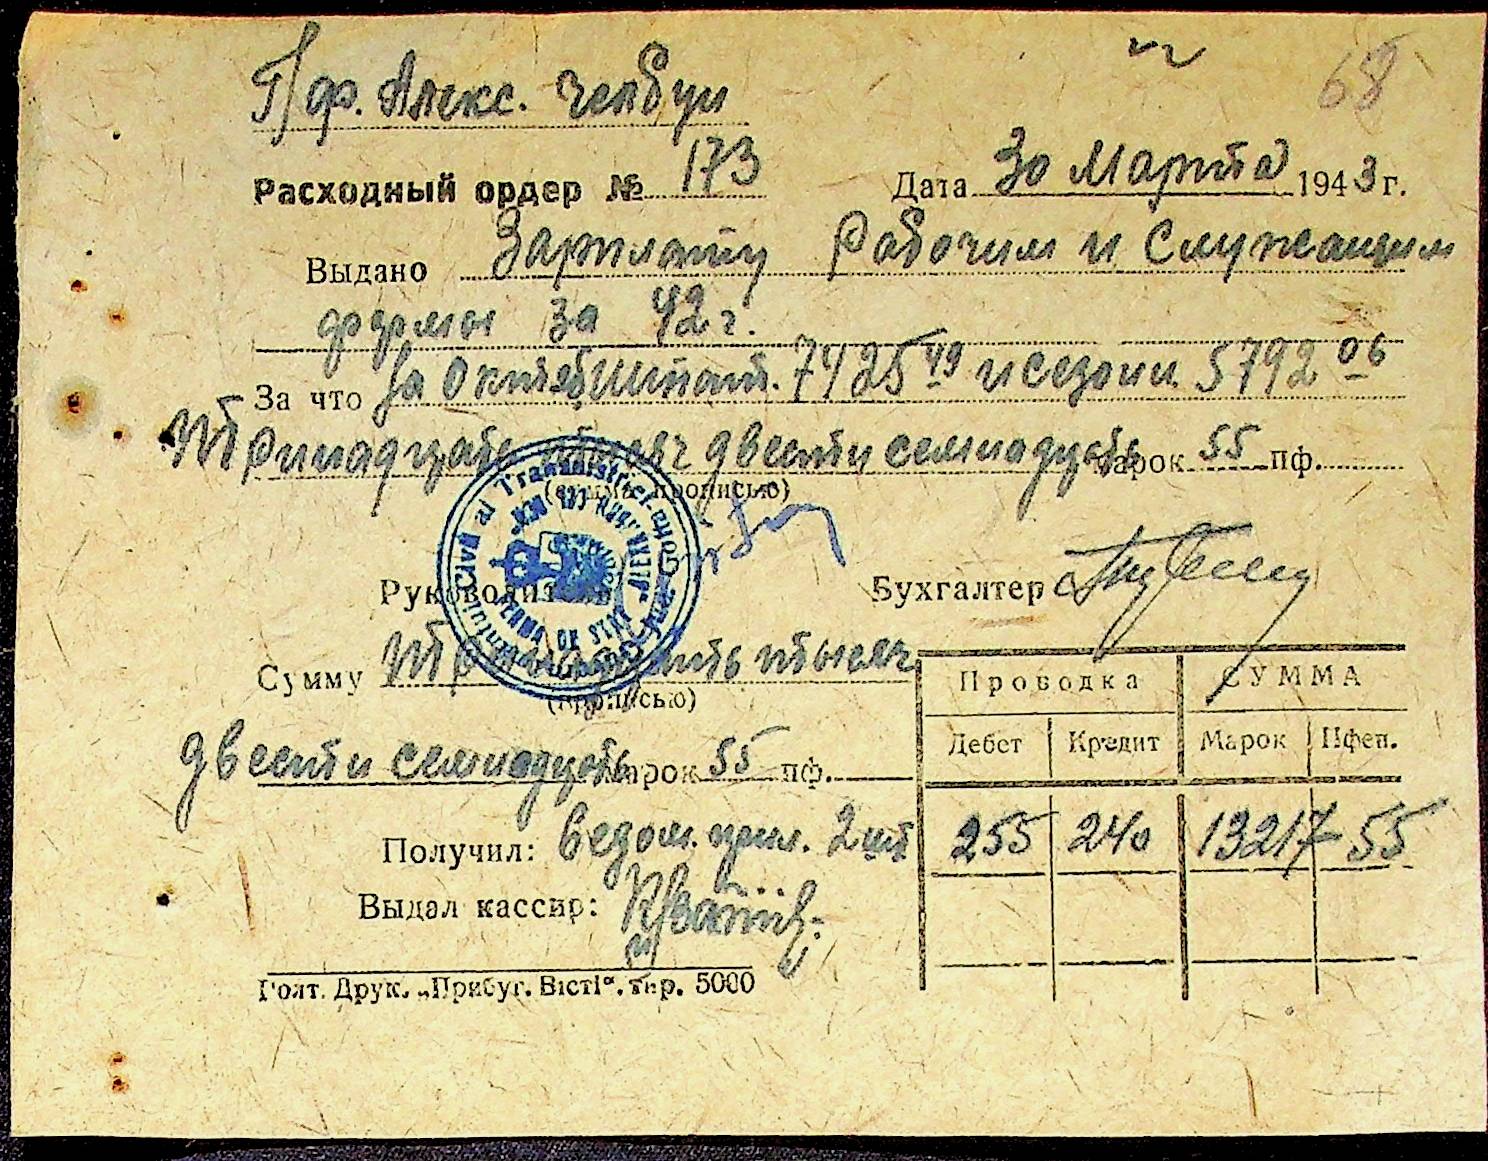 68
Г/ф. Алекс. Челбун
Расходный ордер № 173 Дата 30 Марта 1943 г.
Выдано Зарплату Рабочим и Служащим
фермы за 42 г.
За что За Октяб штат. 7425 49 и сезонн. 5792 06
Тринадцать тысяч двести семнадцать марок 55 пф.
(сумма прописью)
Руководитель Бухгалтер
Сумму Тринадцать тысяч
(прописью)
двести семнадцать марок 55 пф.
Проводка СУММА
Дебет Кредит Марок Пфен.
255 240 13217 55
Получил: ведом. прил. 2 шт
Выдал кассир:
Голт. Друк. „Прибуг. Вісті“. тир. 5000
Civil al Transnistriei
FERMA DE STAT